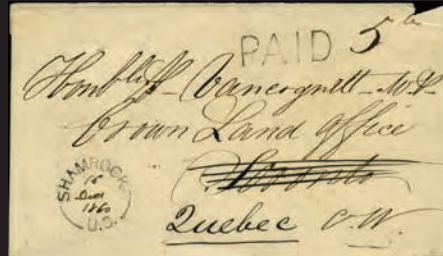 PAID 5
Honble P. Vancognett M.P.
Crown Land Office
Toronto
Quebec C.W.
SHAMROCK
15
Decr
1860
U.C.